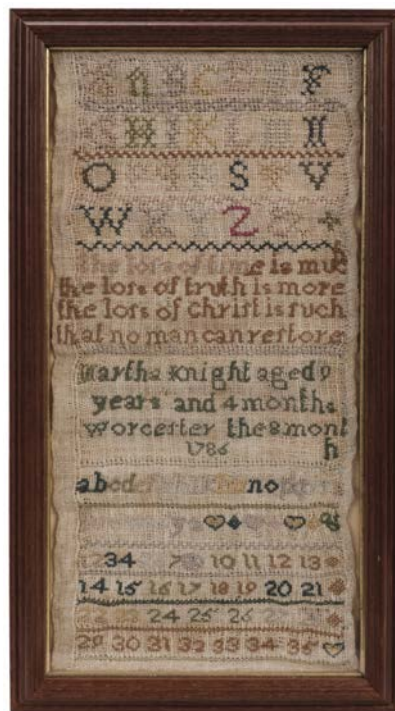 B C F
H I K L N
O P Q R S T V
W X Y Z
h
the loſs of time is muc
the loſs of truth is more
the loſs of Chriſt is ſuch
that no man can reſtore
Martha Knight aged 9
years and 4 months
Worceſter the 8 mont
1786 h
abcdef no
y
2 34 7 10 11 12 13
14 15 16 17 18 19 20 21
24 25 26
29 30 31 32 33 34 35